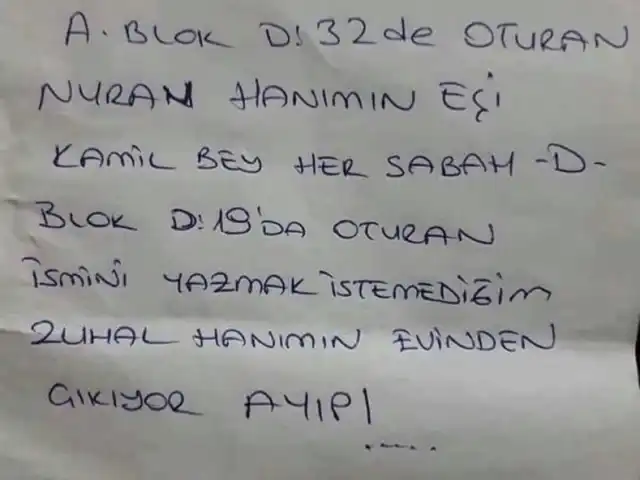 A. BLOK D:32de OTURAN
NURAN HANIMIN EŞİ
KAMİL BEY HER SABAH -D-
BLOK D:19'DA OTURAN
İSMİNİ YAZMAK İSTEMEDİĞİM
ZUHAL HANIMIN EVİNDEN
ÇIKIYOR AYIP!
......